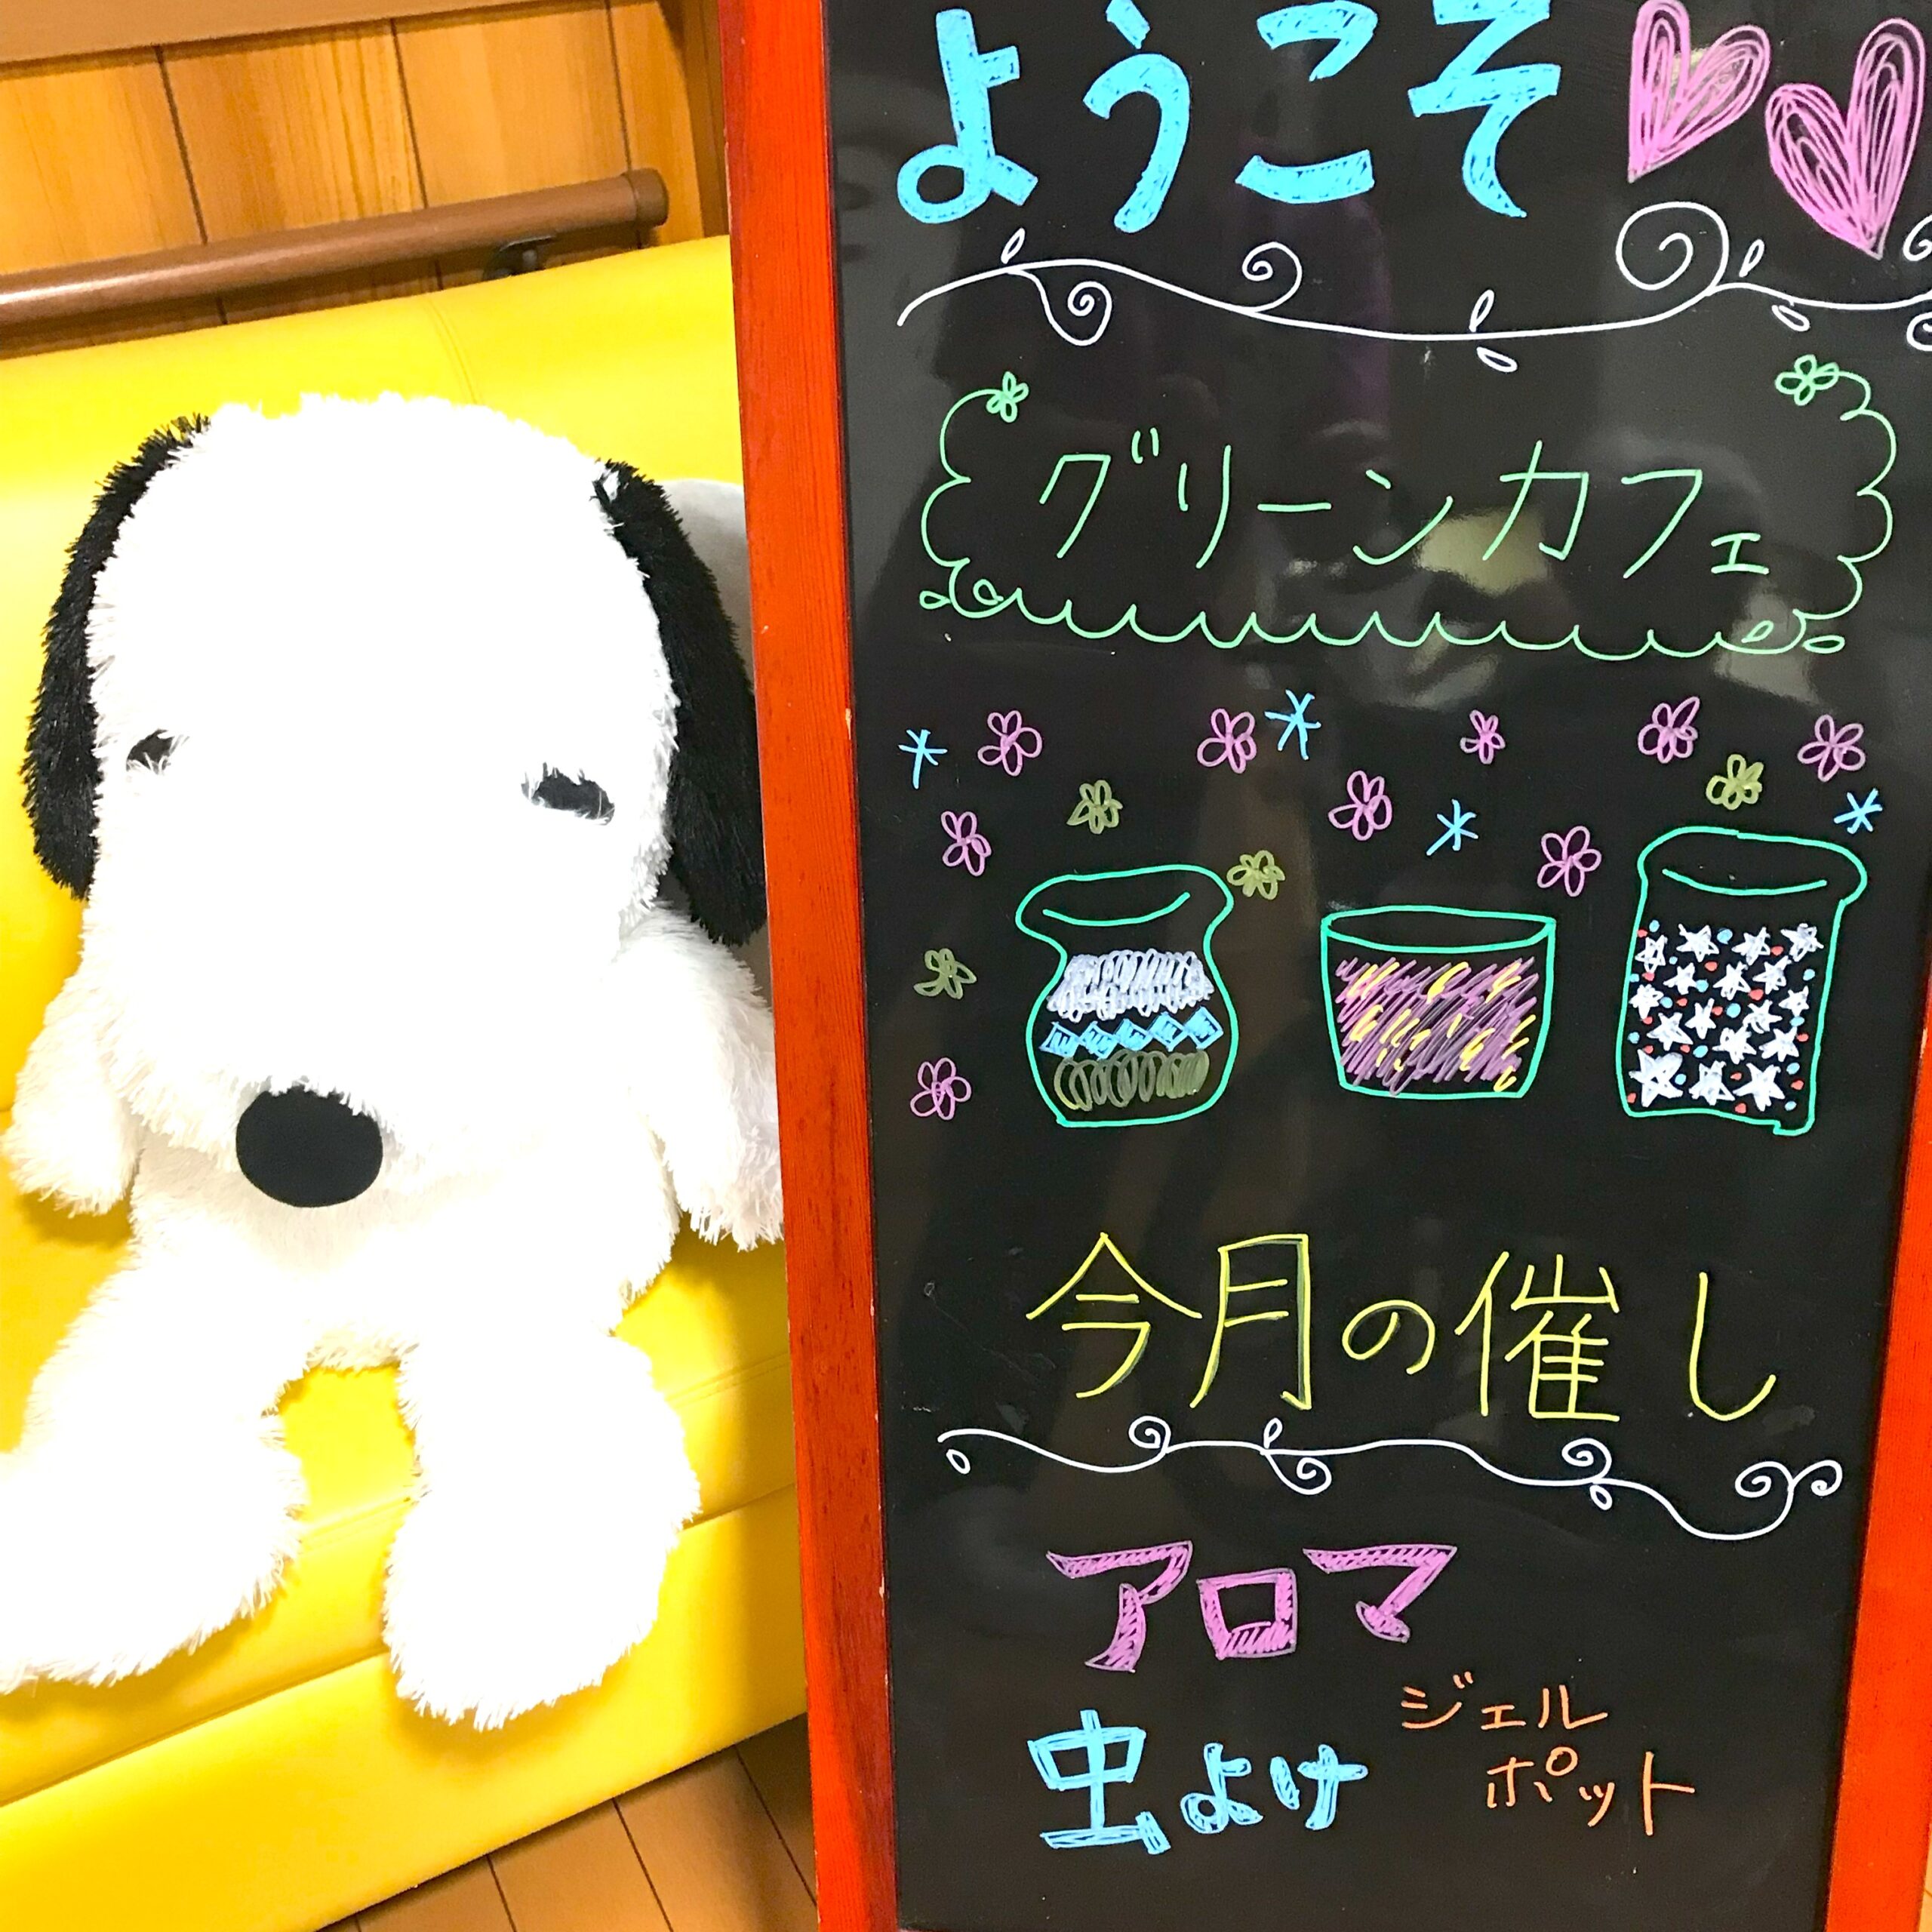 ようこそ
グリーンカフェ
今月の催し
アロマ
虫よけ ジェル
ポット